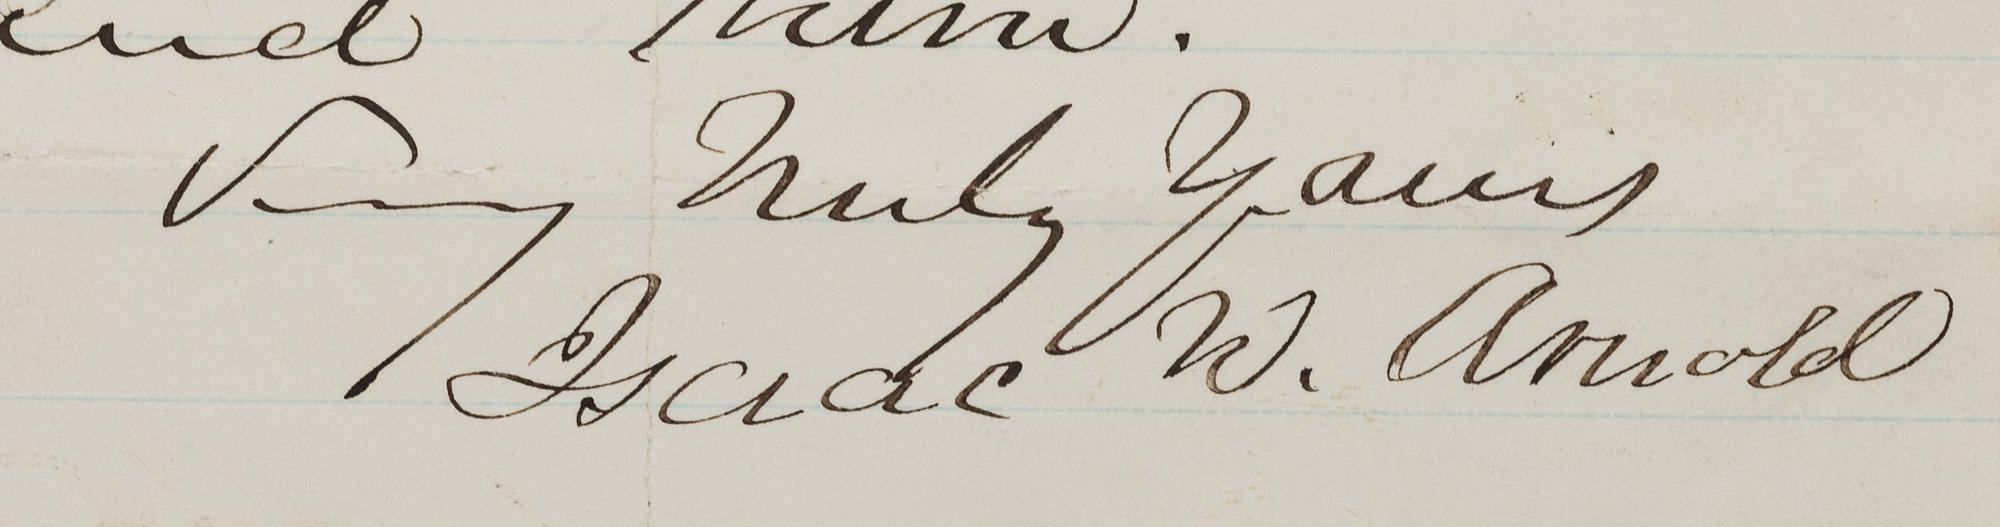 him.
Very Truly Yours
Isaac W. Arnold